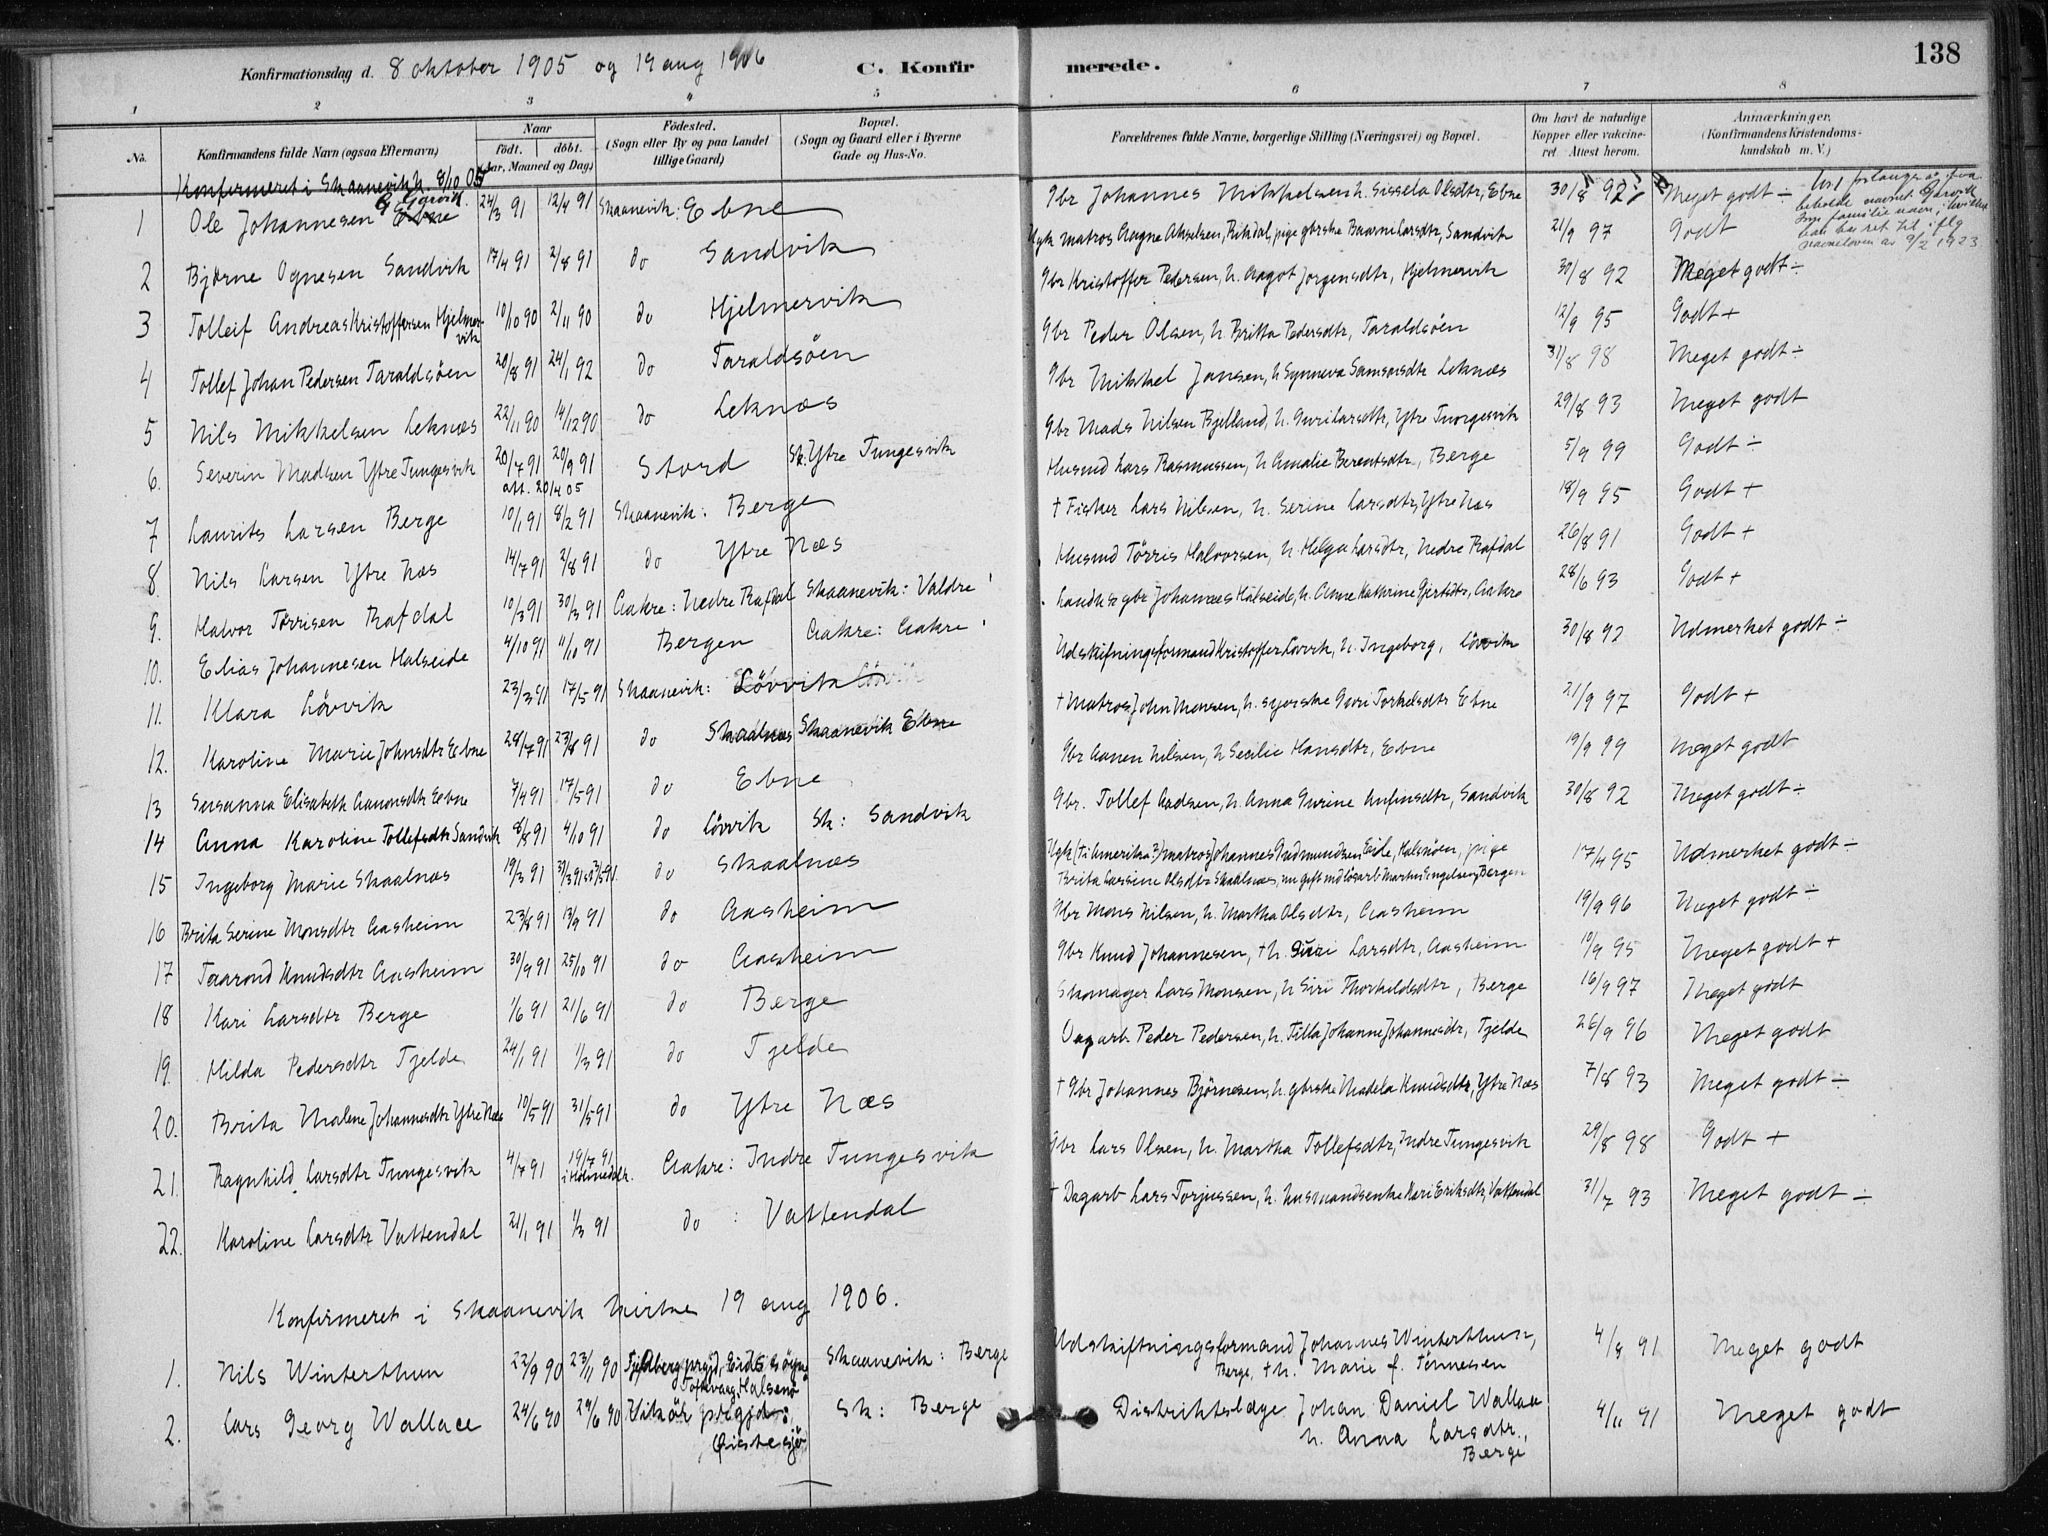 138
Konfirmationsdag d. 8 oktober 1905 og 19 aug 1906 C. Konfirmerede.
1 2 3 4 5 6 7 8
No. Konfirmandens fulde Navn (ogsaa Efternavn) Naar født. døbt. (Aar, Maaned og Dag) Fødested. (Sogn eller By og paa Landet tillige Gaard) Bopæl. (Sogn og Gaard eller i Byerne Gade og Hus-No. Forældrenes fulde Navne, borgerlige Stilling (Næringsvei) og Bopæl. Om havt de naturlige Kopper eller vakcineret. Attest herom. Anmærkninger. (Konfirmandens Kristendomskundskab m. V.)
Konfirmeret i Skaanevik k. 8/10 05
1 Ole Johannesen Ebne Gjarvik 24/3 91 12/4 91 Skaanevik: Ebne Gbr Johannes Mikkelsen h. Sissela Olsdtr, Ebne 30/8 92 Meget godt ÷
2 Bjørne Ognesen Sandvik 17/4 91 2/8 91 do Sandvik Ugk matros Aagne Akselsen, Rikdal, pige gbrske Baarni Larsdtr, Sandvik 21/9 97 Godt
3 Tolleif Andreas Kristoffersen Hjelmervik 10/10 90 2/11 90 do Hjelmervik Gbr Kristoffer Pedersen, h. Aagot Jørgensdtr, Hjelmervik 30/8 92 Meget godt ÷
4 Tollef Johan Pedersen Taraldsøen 20/8 91 24/1 92 do Taraldsøen Gbr Peder Olsen, h Britta Pedersdtr, Taraldsøen 12/9 95 Godt +
5 Nils Mikkelsen Leknæs 22/11 90 14/12 90 do Leknæs Gbr Mikkel Jansen, h Synneva Samsonsdtr Leknæs 31/8 98 Meget godt ÷
6. Severin Madsen Ytre Tungesvik 20/7 91 20/9 91 att. 20/4 05 Stord Sk. Ytre Tungesvik Gbr Mads Nilsen Bjelland, h. Guri Larsdtr, Ytre Tungesvik 29/8 93 Meget godt
7 Laurits Larsen Berge 10/1 91 8/2 91 Skaanevik: Berge Husmd Lars Rasmussen, h Amalie Berentsdtr, Berge 5/9 99 Godt ÷
8. Nils Larsen Ytre Næs 14/7 91 2/8 91 do Ytre Næs † Fisker Lars Nilsen, h. Serine Larsdtr, Ytre Næs 18/9 95 Godt +
9. Halvor Tørrisen Rafdal 10/3 91 30/3 91 Aakre: Nedre Rafdal Skaanevik: Valdre Husmd Tørris Halvorsen, h. Helga Larsdtr, Nedre Rafdal 26/8 91 Godt +
10. Elias Johannesen Halseide 4/10 91 11/10 91 Bergen Aakre: Aakre Landh & gbr Johannes Halseide, h. Anne Kathrine Gjertsdtr, Aakre 28/6 93 Godt +
11. Klara Løvvik 23/3 91 17/5 91 Skaanevik: Løvvik Udskiftningsformand Kristoffer Løvvik, h. Ingeborg, Løvvik 30/8 92 Udmerket godt ÷
12. Karoline Marie Johnsdtr Ebne 28/7 91 23/8 91 do Skaalnæs Skaanevik Ebne † Matros John Monsen, h. syerske Guri Torkelsdtr Ebne 21/9 97 Godt +
13 Susanna Elisabeth Aanonsdtr Ebne 7/4 91 17/5 91 do Ebne Gbr Aanen Nilsen, h Secilie Hansdtr, Ebne 19/9 99 Meget godt
14 Anna Karoline Tollefsdtr Sandvik 8/8 91 4/10 91 do Løvvik Sk: Sandvik Gbr. Tollef Aadsen, h. Anna Gurine Anfinsdtr, Sandvik 30/8 92 Meget godt ÷
15 Ingeborg Marie Skaalnæs 19/3 91 do Skaalnæs Ugk (til Amerika?) matros Johannes Gudmundsen Eide, Halsnøen, pige Brita Larsine Olsdtr Skaalnæs, nu gift md løsarb Martin Engelsen, Bergen 17/4 95 Udmerket godt ÷
16 Brita Serine Monsdtr Aasheim 23/8 91 13/9 91 do Aasheim Gbr Mons Nilsen, h. Martha Olsdtr, Aasheim 19/9 96 Meget godt ÷
17 Taarond Knudsdtr Aasheim 30/9 91 25/10 91 do Aasheim Gbr Knud Johannesen, † h. Siri Larsdtr, Aasheim 10/9 95 Meget godt +
18 Kari Larsdtr Berge 1/6 91 21/6 91 do Berge Skomager Lars Monsen, h Siri Thorkildsdtr, Berge 16/9 97 Meget godt
19. Hilda Pedersdtr Tjelde 24/1 91 1/3 91 do Tjelde Dagarb. Peder Pedersen, h. Tilla Johanne Johannesdtr, Tjelde 26/9 96 Meget godt
20. Brita Malene Johannesdtr Ytre Næs 10/5 91 31/5 91 do Ytre Næs † Gbr Johannes Bjørnesen, h. gbrske Madela Knudsdtr, Ytre Næs 7/8 93 Meget godt ÷
21. Ragnhild Larsdtr Tungesvik 4/7 91 19/7 91 i Holmedal k. Aakre: Indre Tungesvik Gbr Lars Olsen, h. Martha Tollefsdtr, Indre Tungesvik 29/8 98 Godt +
22. Karoline Larsdtr Vattendal 21/1 91 1/3 91 do : Vattendal † Dagarb Lars Torjussen, h. husmandsenke Kari Eriksdtr, Vattendal 31/7 93 Meget godt ÷
Konfirmeret i Skaanevik kirke 19 aug 1906.
1. Nils Winterthun 22/9 90 23/11 90 Fjelberg prgjd, Eids sogn Toftevaag, Halsenø Skaanevik: Berge Udskiftningsformand Johannes Winterthun, Berge, † h. Marie f. Tønnessen 4/8 91 Meget godt
2. Lars Georg Wallace 24/6 90 29/6 90 Vikør prgjd: Østesjø Sk: Berge Distriktslæge Johan Daniel Wallace h. Anna Larsdtr., Berge 4/11 91 Meget godt
No 1 forlanger at faa beholde navnet Gjarvik som familienavn, hvilket han har ret til iflg navneloven av 9/2 1923